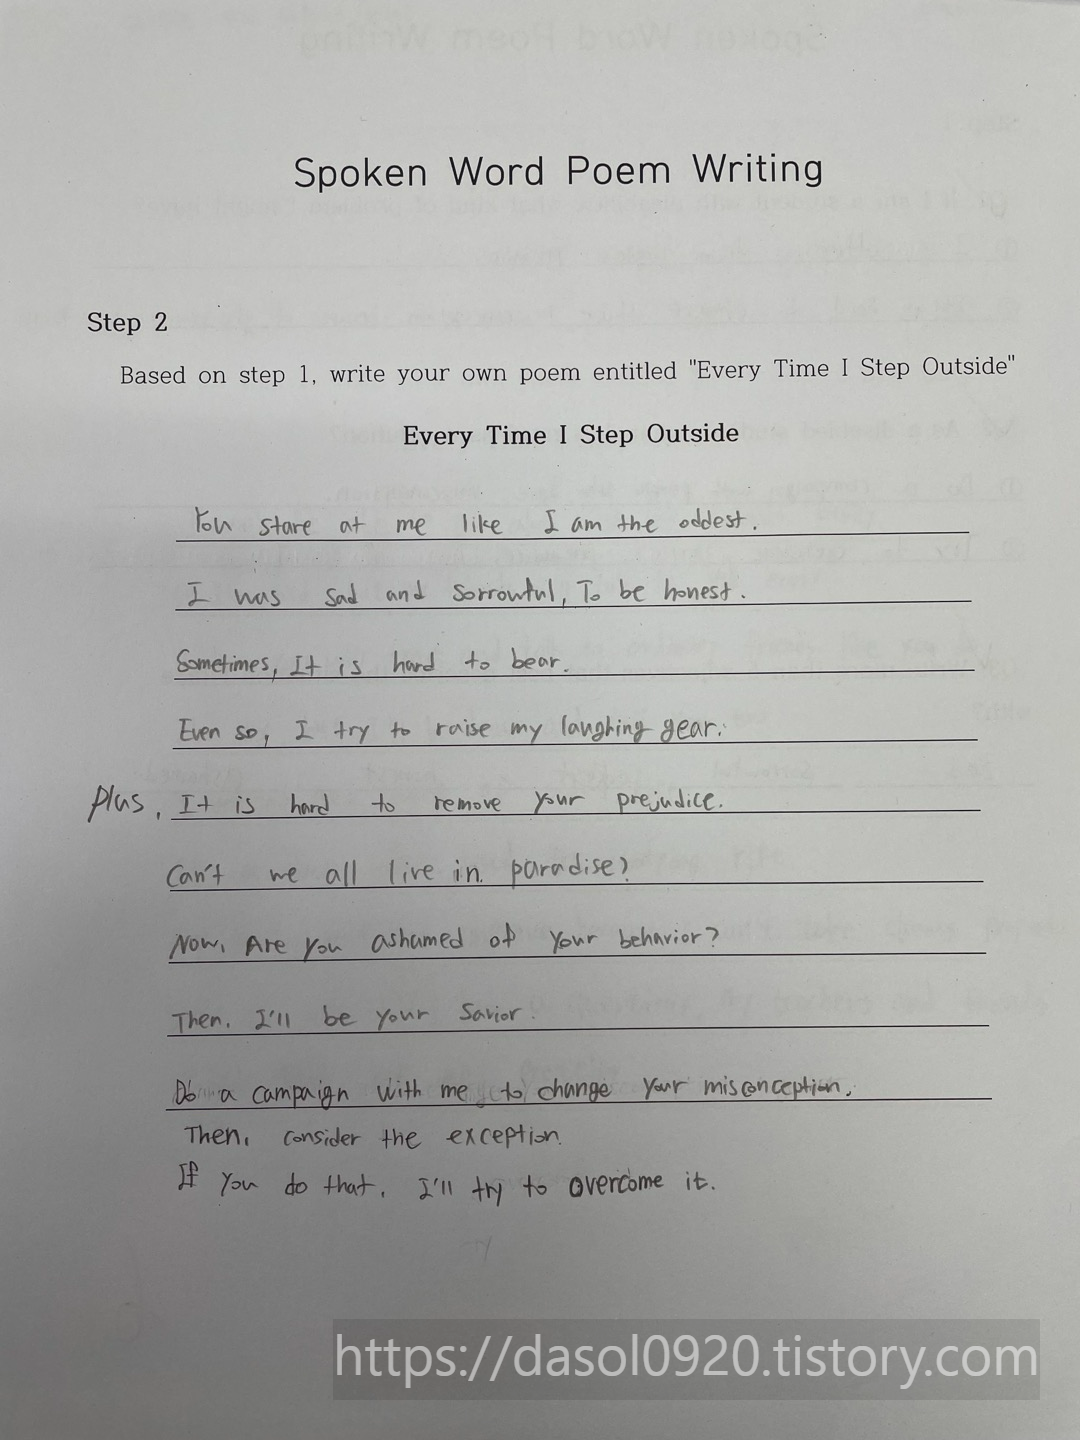 Spoken Word Poem Writing
Step 2
Based on step 1, write your own poem entitled "Every Time I Step Outside"
Every Time I Step Outside
You stare at me like I am the oddest.
I was sad and sorrowful, To be honest.
Sometimes, It is hard to bear.
Even so, I try to raise my laughing gear.
Plus, It is hard to remove your prejudice.
Can't we all live in paradise?
Now, Are you ashamed of your behavior?
Then, I'll be your savior.
Do a campaign with me to change your misconception.
Then, consider the exception.
If you do that, I'll try to overcome it.
https://dasol0920.tistory.com